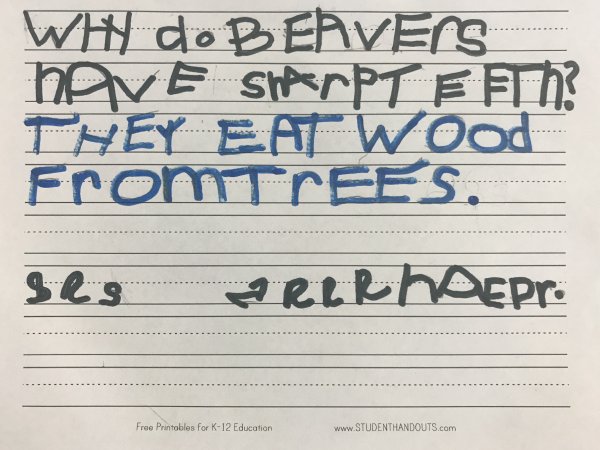 WHY do BEAVErS
hAVE ShArPTEETh?
THEY EAT WOOd
FrOMTrEES.
Free Printables for K-12 Education www.STUDENTHANDOUTS.com